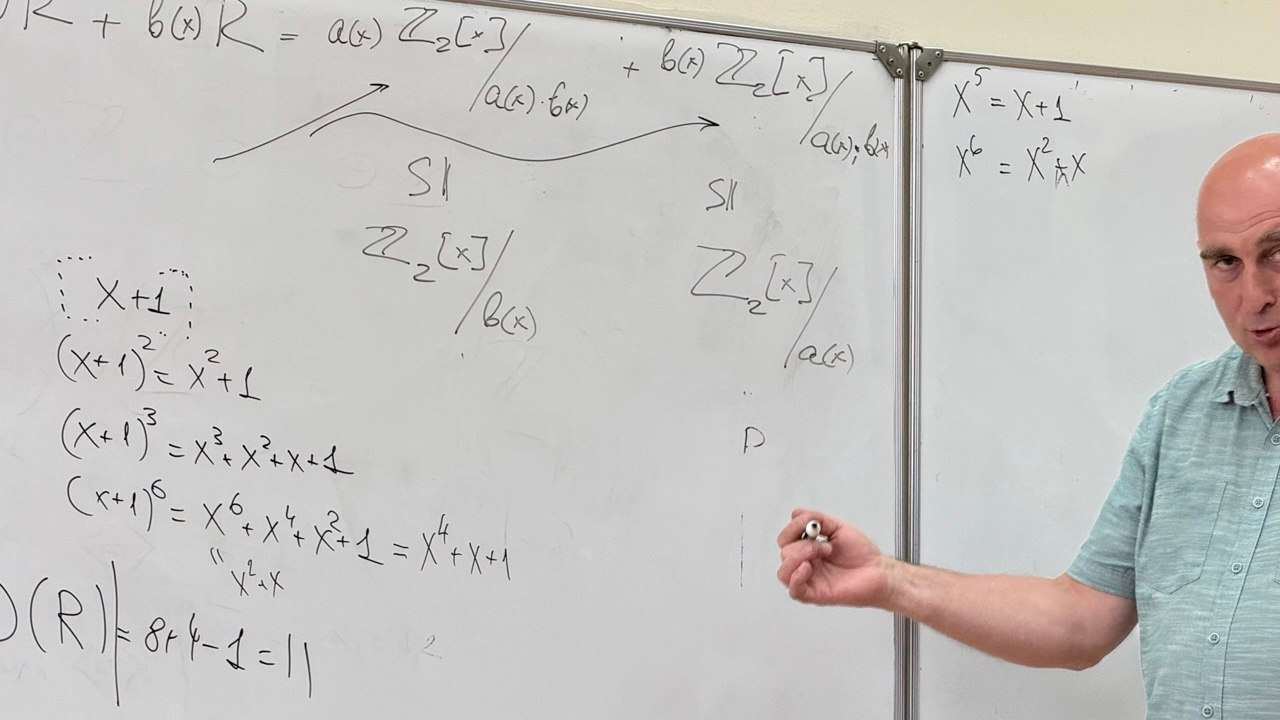 R + b(x) R = a(x) ℤ₂[x] / a(x)·b(x) + b(x) ℤ₂[x] / a(x)·b(x)
S|| S||
ℤ₂[x] / b(x) ℤ₂[x] / a(x)
x+1
(x+1)² = x²+1
(x+1)³ = x³+x²+x+1
(x+1)⁶ = x⁶+x⁴+x²+1 = x⁴+x+1
" x²+x
D(R)| = 8+4-1 = 11
x⁵ = x+1
x⁶ = x²+x